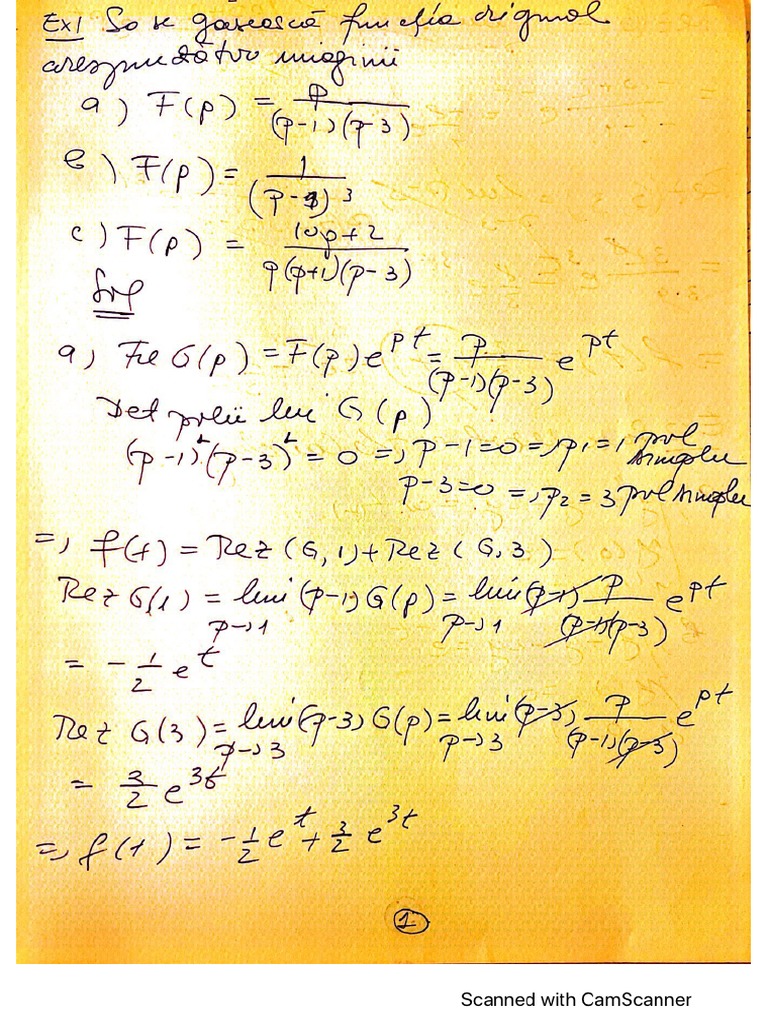 Ex1 Să se găsească funcția original
corespunzător imaginii
a) F(p) = p / (p-1)(p-3)
b) F(p) = 1 / (p-)^3
c) F(p) = 10p+2 / p(p+1)(p-3)
a) Fie G(p) = F(p) e^{pt} = p / (p-1)(p-3) e^{pt}
Det polii lui G(p)
(p-1)(p-3) = 0 => p-1=0 => p1=1 pol simplu
p-3=0 => p2=3 pol simplu
=> f(t) = Rez(G,1) + Rez(G,3)
Rez G(1) = lim p→1 (p-1) G(p) = lim p→1 (p-1) p / (p-1)(p-3) e^{pt}
= -1/2 e^t
Rez G(3) = lim p→3 (p-3) G(p) = lim p→3 (p-3) p / (p-1)(p-3) e^{pt}
= 3/2 e^{3t}
=> f(t) = -1/2 e^t + 3/2 e^{3t}
1.
Scanned with CamScanner